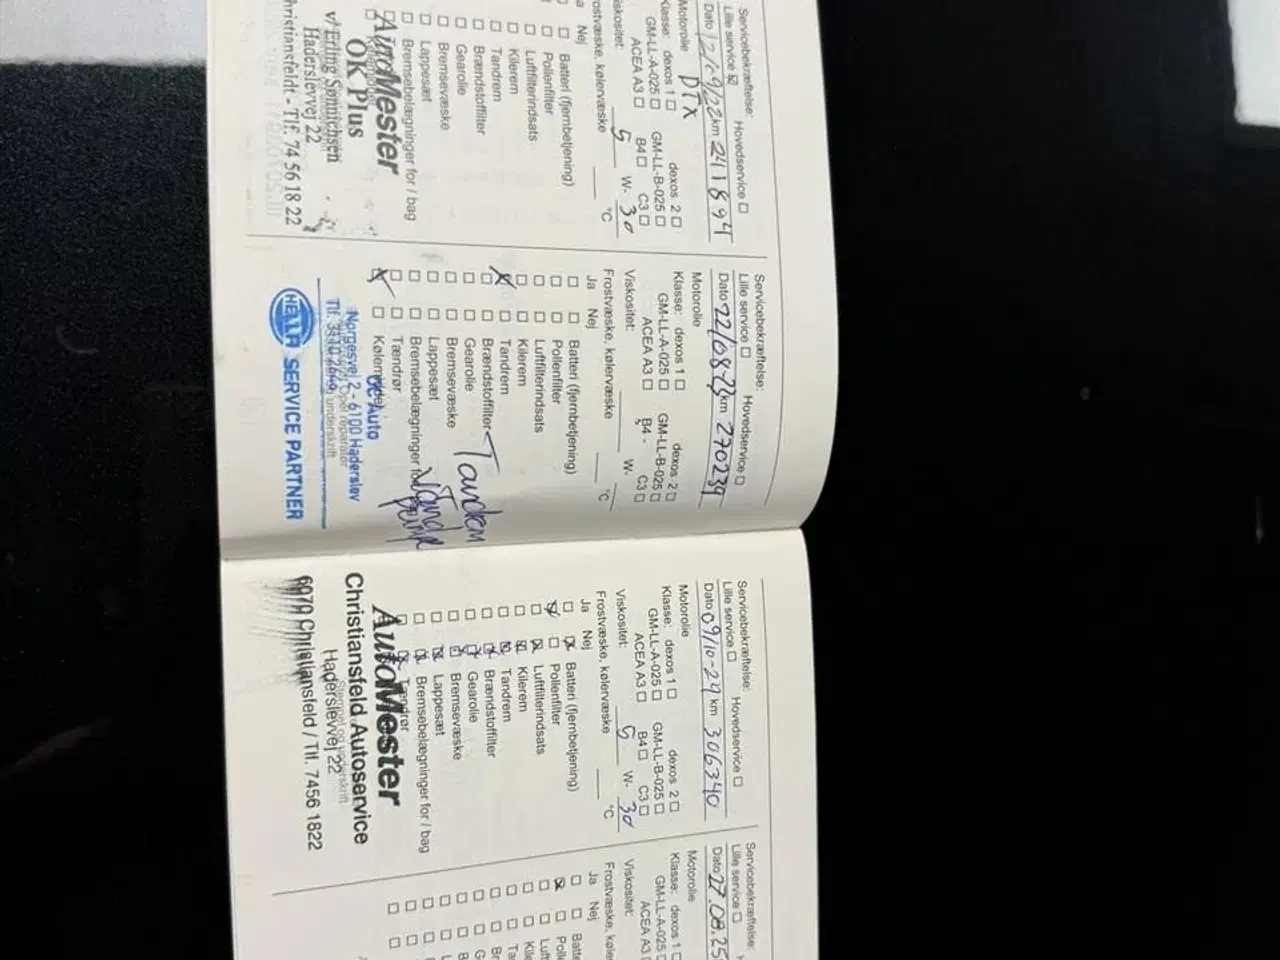 Servicebekræftelse:
Lille service ☒ Hovedservice ☐
Dato 12/09/22 km 241894
Motorolie DTX
Klasse: dexos 1 ☐ dexos 2 ☐
GM-LL-A-025 ☐ GM-LL-B-025 ☐
ACEA A3 ☐ B4 ☐ C3 ☐
Viskositet: 5 W- 30
Frostvæske, kølervæske °C
Ja Nej
☐ Batteri (fjernbetjening)
☐ Pollenfilter
☐ Luftfilterindsats
☐ Kilerem
☐ Tandrem
☐ Brændstoffilter
☐ Gearolie
☐ Bremsevæske
☐ Lappesæt
☐ Bremsebelægninger for / bag
AutoMester
OK Plus
v/Erling Sønnichsen
Haderslevvej 22
Christiansfeldt - Tlf. 74 56 18 22
Servicebekræftelse:
Lille service ☐ Hovedservice ☐
Dato 22/08-23 km 270239
Motorolie
Klasse: dexos 1 ☐ dexos 2 ☐
GM-LL-A-025 ☐ GM-LL-B-025 ☐
ACEA A3 ☐ B4 - C3 ☐
Viskositet: W-
Frostvæske, kølervæske °C
Ja Nej
☐ ☐ Batteri (fjernbetjening)
☐ ☐ Pollenfilter
☐ ☐ Luftfilterindsats
☐ ☐ Kilerem
☒ ☐ Tandrem
☐ ☐ Brændstoffilter
☐ ☐ Gearolie
☐ ☐ Bremsevæske
☐ ☐ Lappesæt
☐ ☐ Bremsebelægninger for
☐ ☐ Tændrør
☒ ☐ Kølemiddel
Tandem
Vand
Pumpe
Auto
Norgesvej 2 - 6100 Haderslev
Opel reparatør
Tlf. underskrift
HELLA SERVICE PARTNER
Servicebekræftelse:
Lille service ☐ Hovedservice ☐
Dato 09/10-24 km 306340
Motorolie
Klasse: dexos 1 ☐ dexos 2 ☐
GM-LL-A-025 ☐ GM-LL-B-025 ☐
ACEA A3 ☐ B4 ☐ C3 ☐
Viskositet: 5 W- 30
Frostvæske, kølervæske °C
Ja Nej
☐ ☒ Batteri (fjernbetjening)
☒ ☐ Pollenfilter
☐ ☒ Luftfilterindsats
☐ ☒ Kilerem
☐ ☒ Tandrem
☐ ☒ Brændstoffilter
☐ ☒ Gearolie
☐ ☒ Bremsevæske
☐ ☒ Lappesæt
☐ ☒ Bremsebelægninger for / bag
☐ ☒ Tændrør
AutoMester
Christiansfeld Autoservice
Stempel og underskrift
Haderslevvej 22
6070 Christiansfeld / Tlf. 7456 1822
Servicebekræftelse:
Lille service ☐
Dato 27.08.25
Motorolie
Klasse: dexos 1 ☐
GM-LL-A-025 ☐
ACEA A3
Viskositet:
Frostvæske, køler
Ja Nej
☐ ☐ Batte
☒ ☐ Polle
☐ ☐ Luft
☐ ☐ Kile
☐ ☐ Ta
☐ ☐ Br
☐ ☐ G
☐ ☐ B